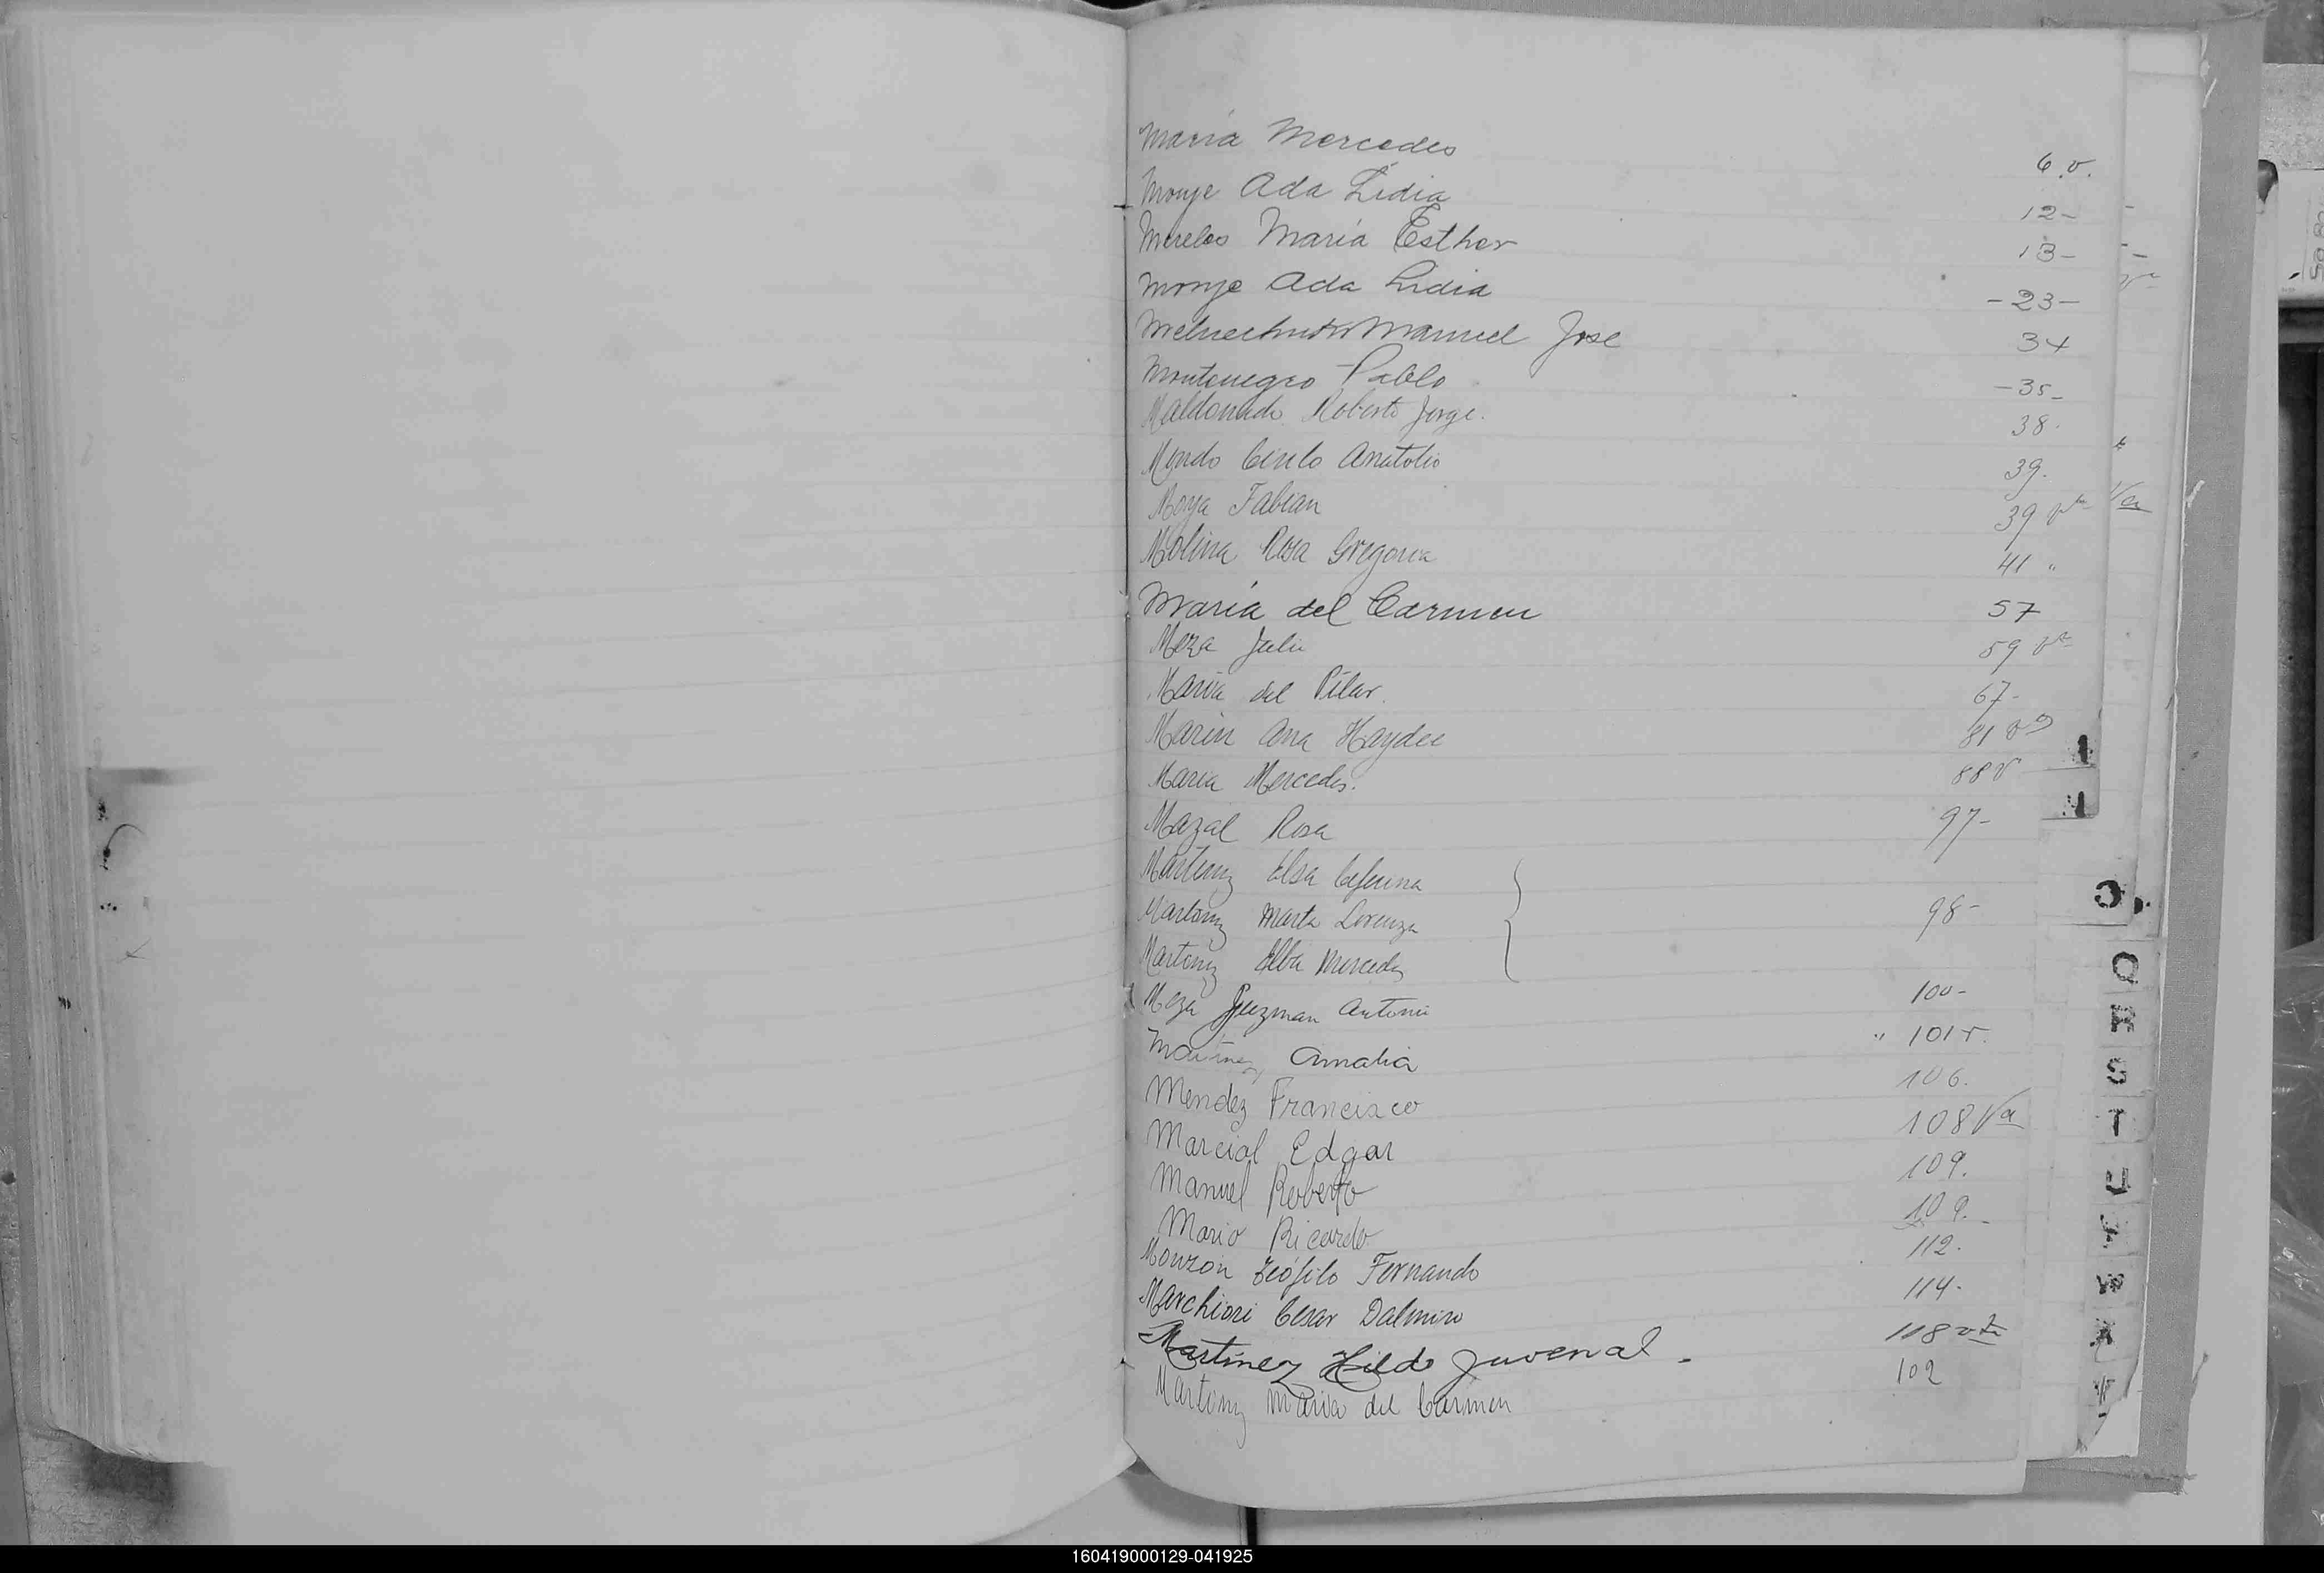 María Mercedes 6.v.
Monje Ada Lidia 12-
Mireles María Esther 13-
Monje Ada Lidia -23-
Manuel Jose 34
Montenegro Pablo -35-
Maldonado Roberto Jorge. 38.
Cirilo Anatolio 39.
Moya Fabian 39 vta
Molina Rosa Gregoria 41 "
María del Carmen 57
Meza Julio 59 vta
María del Pilar. 67-
Marin Ana Haydee 81 v
María Mercedes. 88 v
Mazal Rosa 97-
Martinez Elsa Ceferina
Martinez Marta Lorenza 98-
Martinez Elba Mercedes
Meza Guzman Antonio 100-
Martinez Amalia " 101 v.
Mendez Francisco 106.
Marcial Edgar 108 Va
Manuel Roberto 109.
Mario Ricardo 109.-
Monzón Teófilo Fernando 112.
Marchiori Cesar Dalmiro 114-
Martínez Hildo Juvenal. 118 vta
Martinez María del Carmen 102
Va
1
Q
R
S
T
U
V
W
X
160419000129-041925